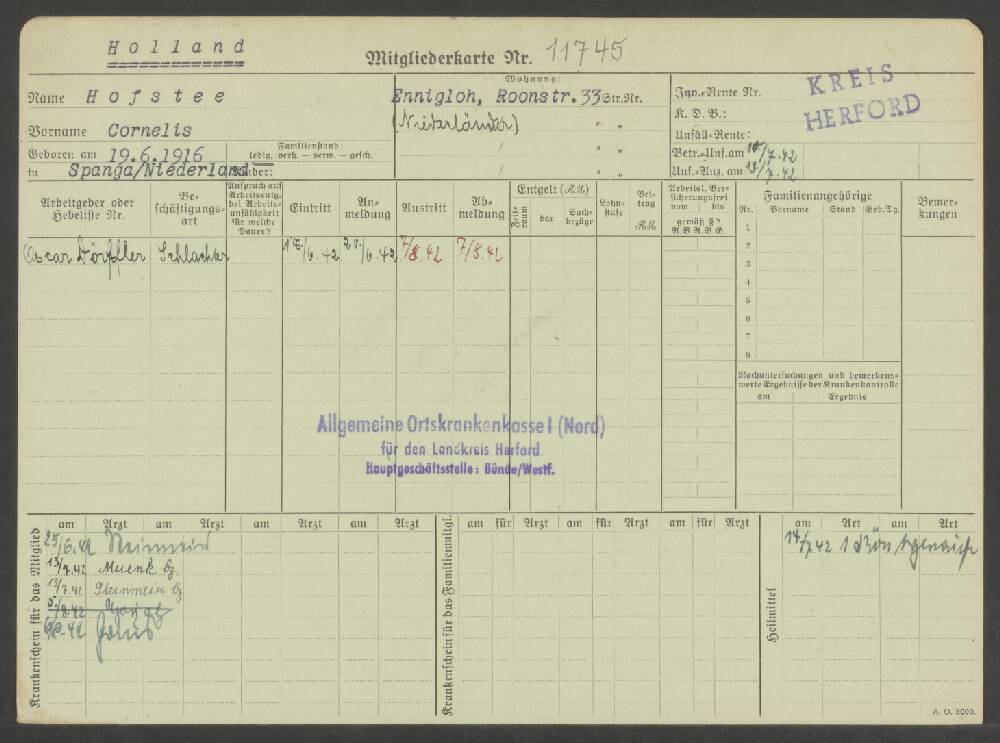 Holland
Mitgliederkarte Nr. 11745
KREIS
HERFORD
Name Hofstee
Wohnung:
Ennigloh, Roonstr. 33 Str. Nr.
(Niederländer)
Vorname Cornelis
Geboren am 19.6.1916
in Spanga/Niederland
Familienstand:
ledig, verh. – verw. – gesch.
Kinder:
Inv.-Rente Nr.
K. D. B.:
Unfall-Rente:
Betr.-Unf. am 10/7.42
Unf.-Anz. am 13/7.42
Arbeitgeber oder Hebeliste Nr.
Beschäftigungsart
Anspruch auf Arbeitsentg. bei Arbeitsunfähigkeit für welche Dauer?
Eintritt
Anmeldung
Austritt
Abmeldung
Entgelt (RM)
Zeitraum
bar
Sachbezüge
Lohnstufe
Beitrag RM
Arbeitsl. Versicherungsfrei
vom bis
gemäß §§
Familienangehörige
Nr. Vorname Stand Geb.Tg.
1
2
3
4
5
6
7
8
Bemerkungen
Oscar Dörffler Schlachter 18/6.42 20/6.42 7/8.42 7/8.42
Nachuntersuchungen und bemerkenswerte Ergebnisse der Krankenkontrolle
am Ergebnis
Allgemeine Ortskrankenkasse I (Nord)
für den Landkreis Herford
Hauptgeschäftsstelle: Bünde/Westf.
Krankenschein für das Mitglied
am Arzt am Arzt am Arzt am Arzt
25/6.42 Steinmein
13/7.42 Muenk
13/7.42 Steinmein
5/8.42
Krankenschein für das Familienmitgl.
am für Arzt am für Arzt am für Arzt
Heilmittel
am Art am Art
14/7.42 1
A. O. 3000.